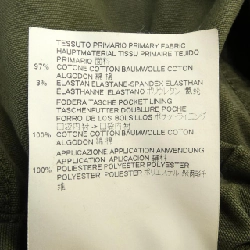 TESSUTO PRIMARIO PRIMARY FABRIC
HAUPTMATERIAL TISSU PRIMAIRE TEJIDO
PRIMARIO 面料
97% COTONE COTTON BAUMWOLLE COTON
ALGODON 綿 棉
3% ELASTAN ELASTANE-SPANDEX ELASTHAN
ELASTHANNE ELASTANO ポリウレタン
FODERA TASCHE POCKET LINING
TASCHENFUTTER DOUBLURE POCHE
FORRO DE LOS BOLSILLOS
100% COTONE COTTON BAUMWOLLE COTON
ALGODON 綿 棉
APPLICAZIONE APPLICATION ANWENDUNG
APPLICATION APLICACION
100% POLIESTERE POLYESTER POLYESTER
POLYESTER POLIESTER ポリエステル